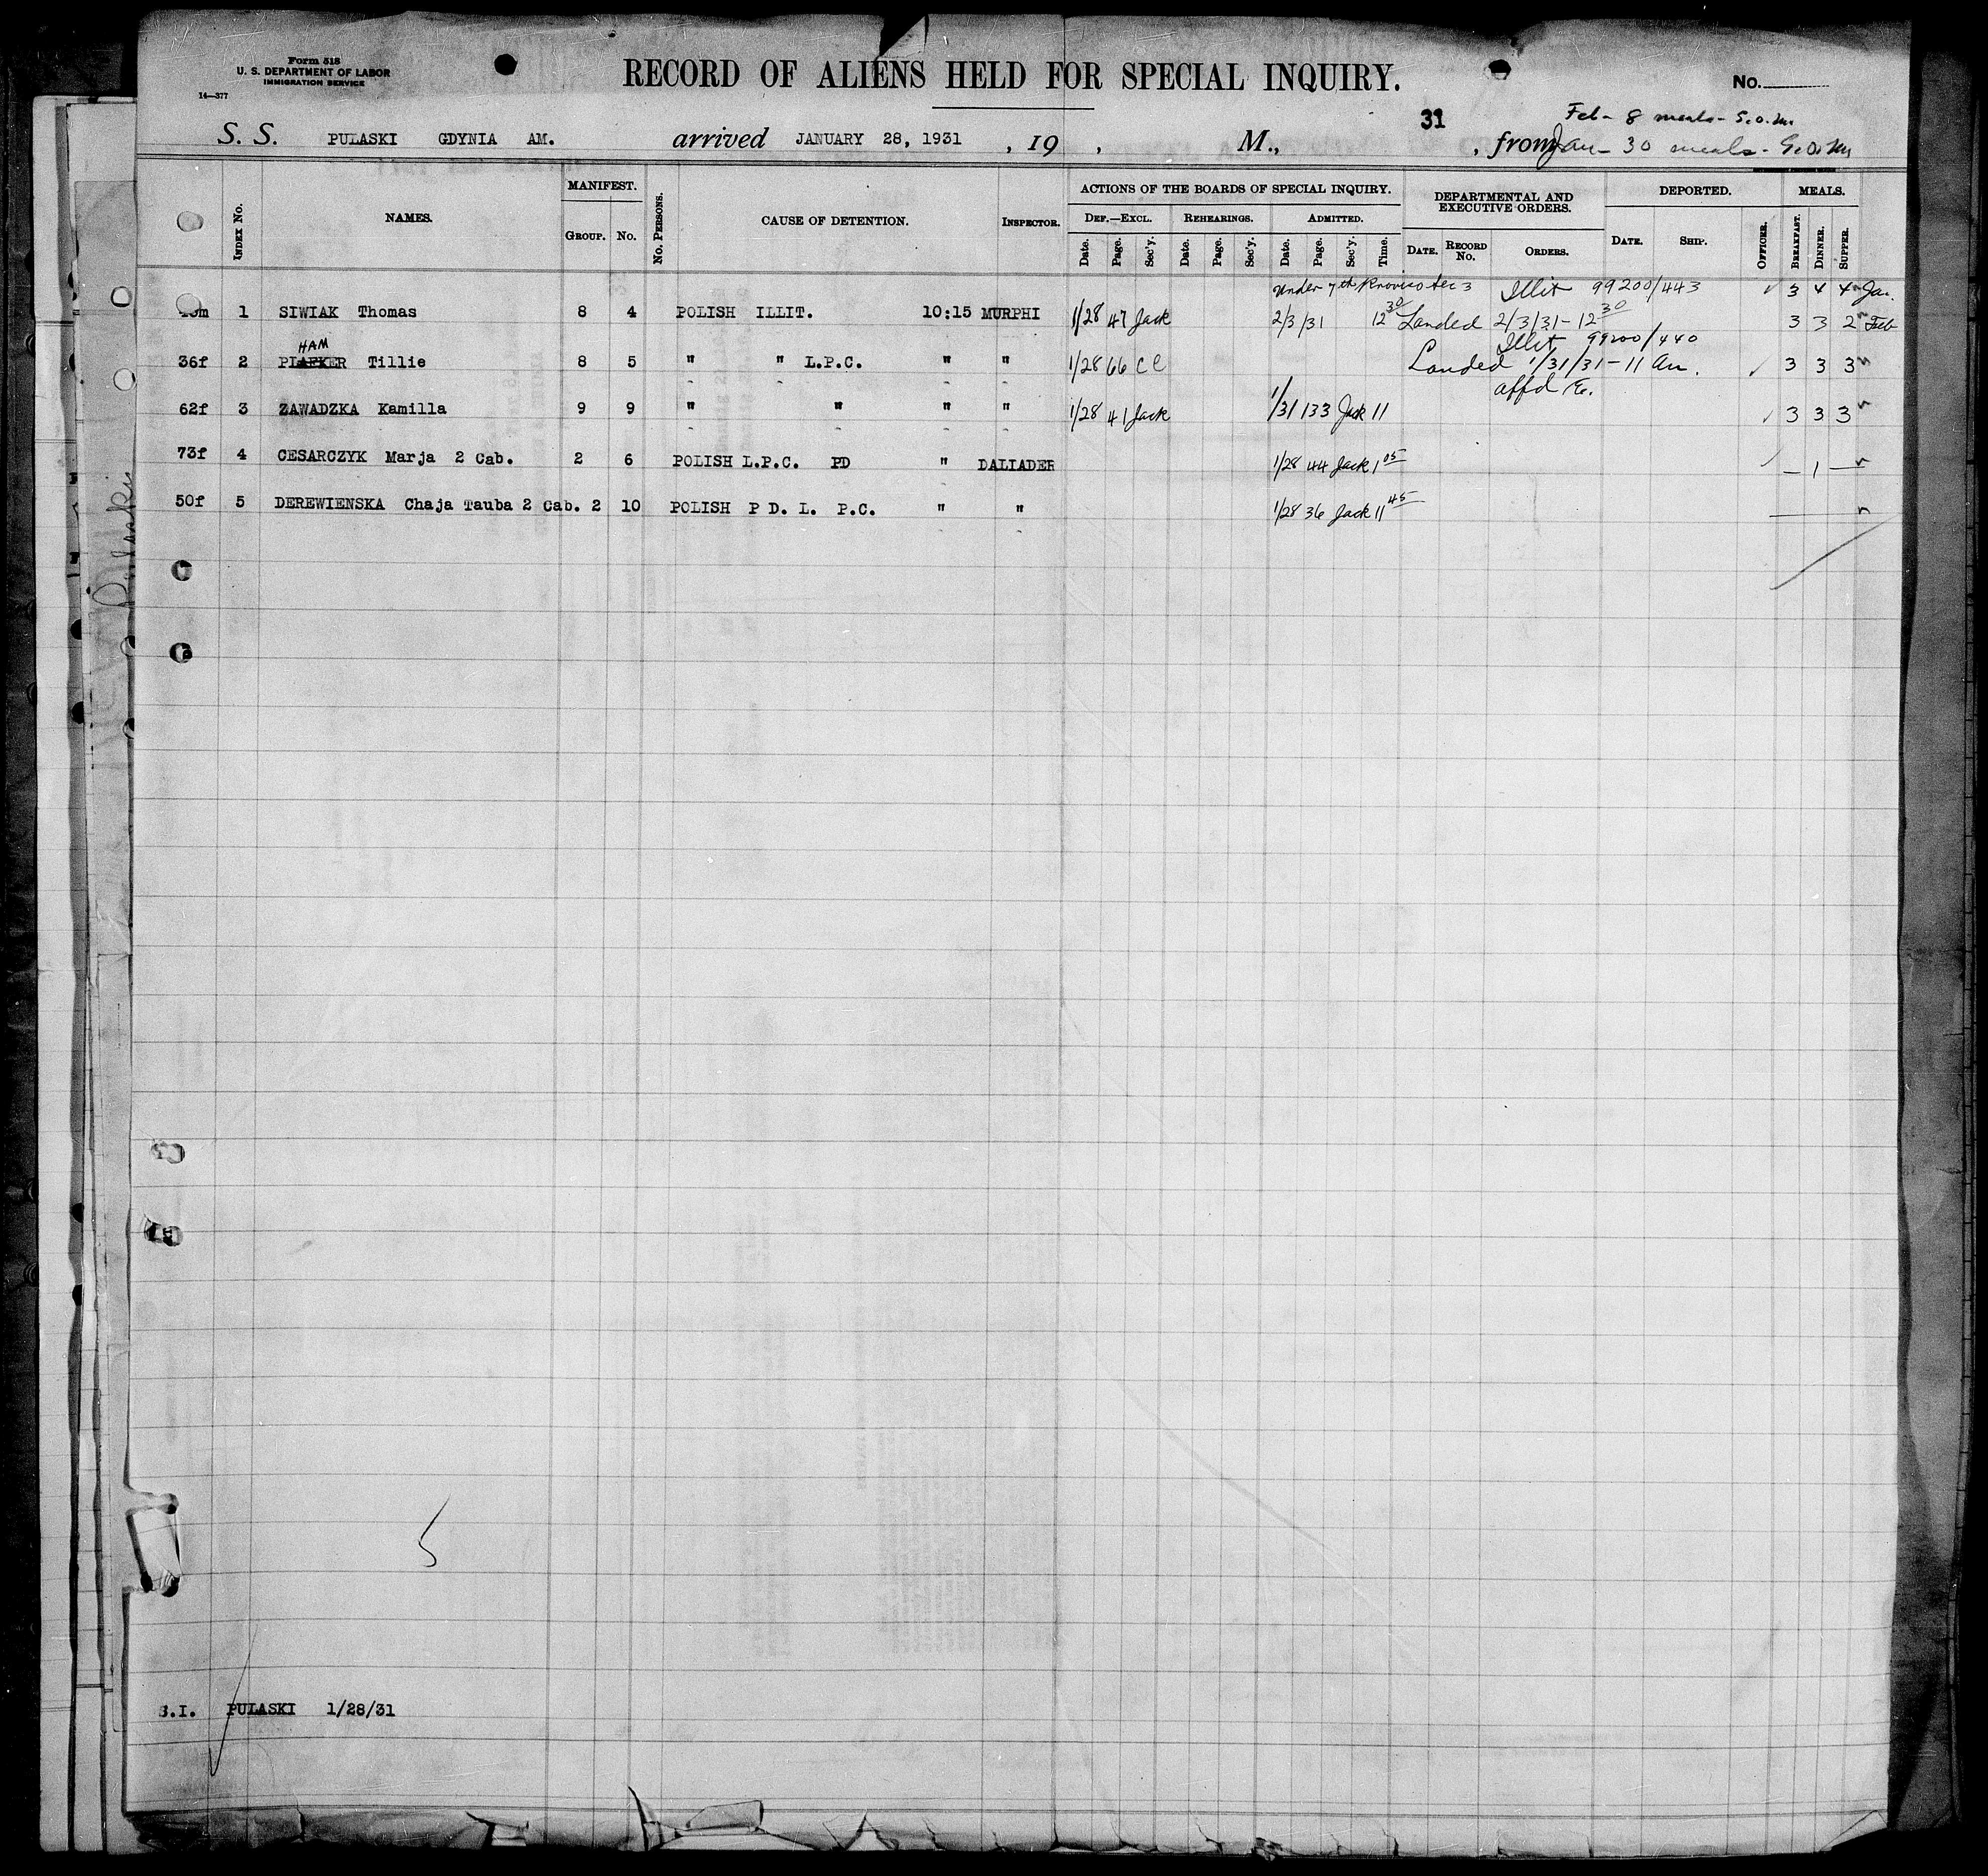 Form 518
U. S. DEPARTMENT OF LABOR
IMMIGRATION SERVICE
14—377
RECORD OF ALIENS HELD FOR SPECIAL INQUIRY.
No.
31
Feb - 8 meals - S.O.M.
S. S. PULASKI GDYNIA AM. arrived JANUARY 28, 1931 , 19 , M., , from Jan - 30 meals -
INDEX No. NAMES. MANIFEST. GROUP. No. No. PERSONS. CAUSE OF DETENTION. INSPECTOR.
ACTIONS OF THE BOARDS OF SPECIAL INQUIRY.
DEF.—EXCL. REHEARINGS. ADMITTED.
Date. Page. Sec'y. Date. Page. Sec'y. Date. Page. Sec'y. Time.
DEPARTMENTAL AND
EXECUTIVE ORDERS.
DATE. RECORD No. ORDERS.
DEPORTED.
DATE. SHIP. OFFICER.
MEALS.
BREAKFAST. DINNER. SUPPER.
Under 7th Proviso Sec 3 Illit 99200/443 3 4 4 Jan.
1 SIWIAK Thomas 8 4 POLISH ILLIT. 10:15 MURPHI 1/28 47 Jack 2/3/31 12 30 Landed 2/3/31 - 12 30 3 3 2 Feb
HAM
Illit 99200/440
36f 2 PLAFKER Tillie 8 5 " " L.P.C. " " 1/28 66 CC Landed 1/31/31 - 11 am. 3 3 3
affd
62f 3 ZAWADZKA Kamilla 9 9 " " " " 1/28 41 Jack 1/31 133 Jack 11 3 3 3
73f 4 CESARCZYK Marja 2 Cab. 2 6 POLISH L.P.C. PD " DALIADER 1/28 44 Jack 1 05 — 1 —
50f 5 DEREWIENSKA Chaja Tauba 2 Cab. 2 10 POLISH P D. L. P.C. " " 1/28 36 Jack 11 45
Pulaski
5
S.I. PULASKI 1/28/31